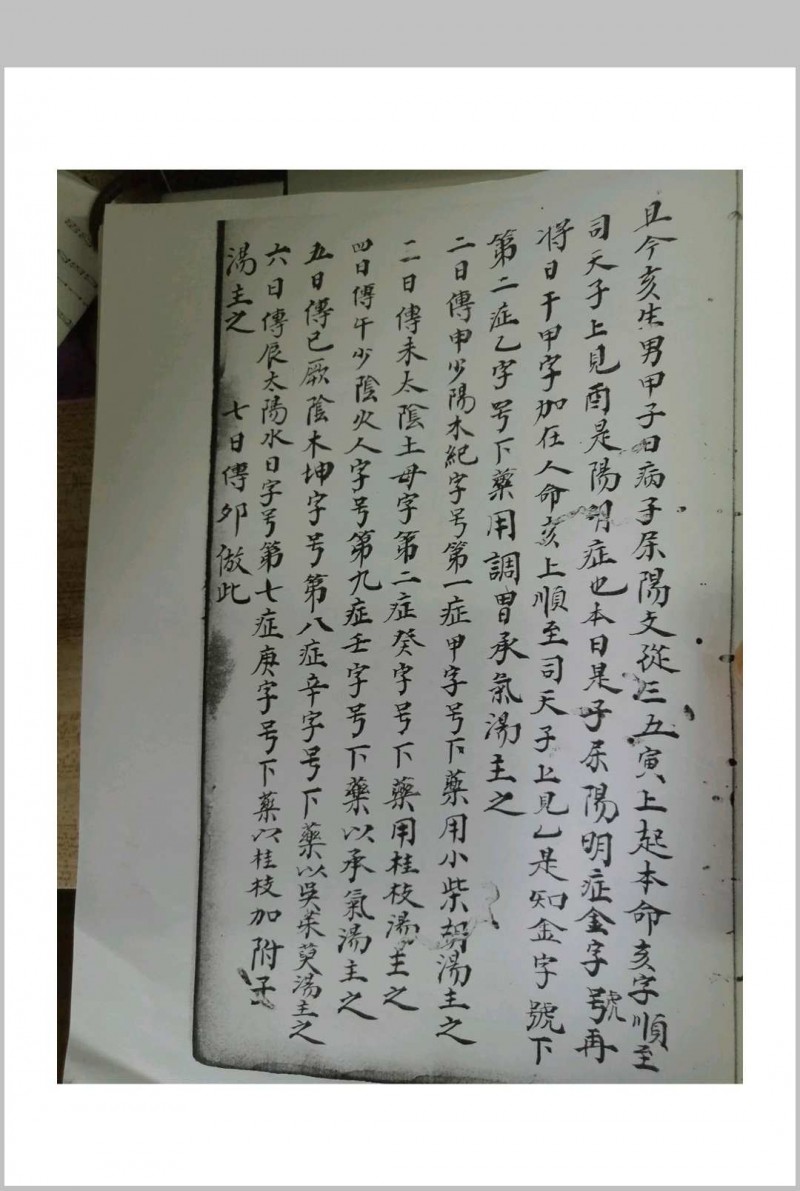 且今亥生男甲子日病子屬陽支從三五寅上起本命亥字順至
司天子上見酉是陽明症也本日是子屬陽明症金字號再
將日干甲字加在人命亥上順至司天子上見乙是知金字號下
第二症乙字号下藥用調胃承氣湯主之
二日傳申少陽木紀字号第一症甲字号下藥用小柴胡湯主之
二日傳未太陰土母字第二症癸字号下藥用桂枝湯主之
四日傳午少陰火人字号第九症壬字号下藥以承氣湯主之
五日傳巳厥陰木坤字号第八症辛字号下藥以吳茱萸湯主之
六日傳辰太陽水日字号第七症庚字号下藥以桂枝加附子
湯主之 七日傳卯倣此